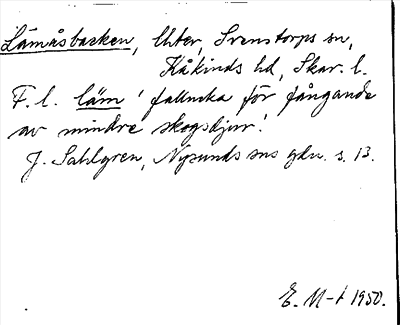 Lämåsbacken, Uhter, Svenstorps sn,
Kåkinds hd, Skar. l.
F. l. läm ' fallucka för fångande
av mindre skogsdjur'.
J. Sahlgren, Nysunds sns gdn. s. 13.
E. M-t 1950.